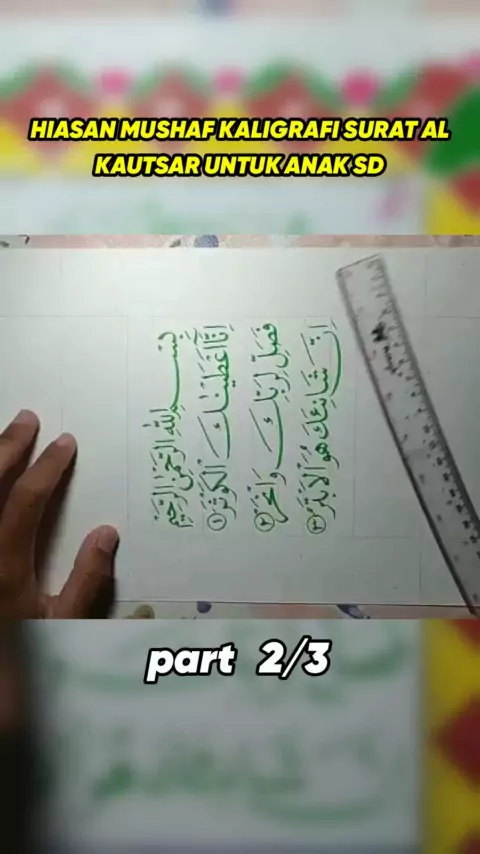 HIASAN MUSHAF KALIGRAFI SURAT AL
KAUTSAR UNTUK ANAK SD
بِسْمِ اللهِ الرَّحْمٰنِ الرَّحِيْمِ
اِنَّآ اَعْطَيْنٰكَ الْكَوْثَرَ ١
فَصَلِّ لِرَبِّكَ وَانْحَرْ ٢
اِنَّ شَانِئَكَ هُوَ الْاَبْتَرُ ٣
part 2/3